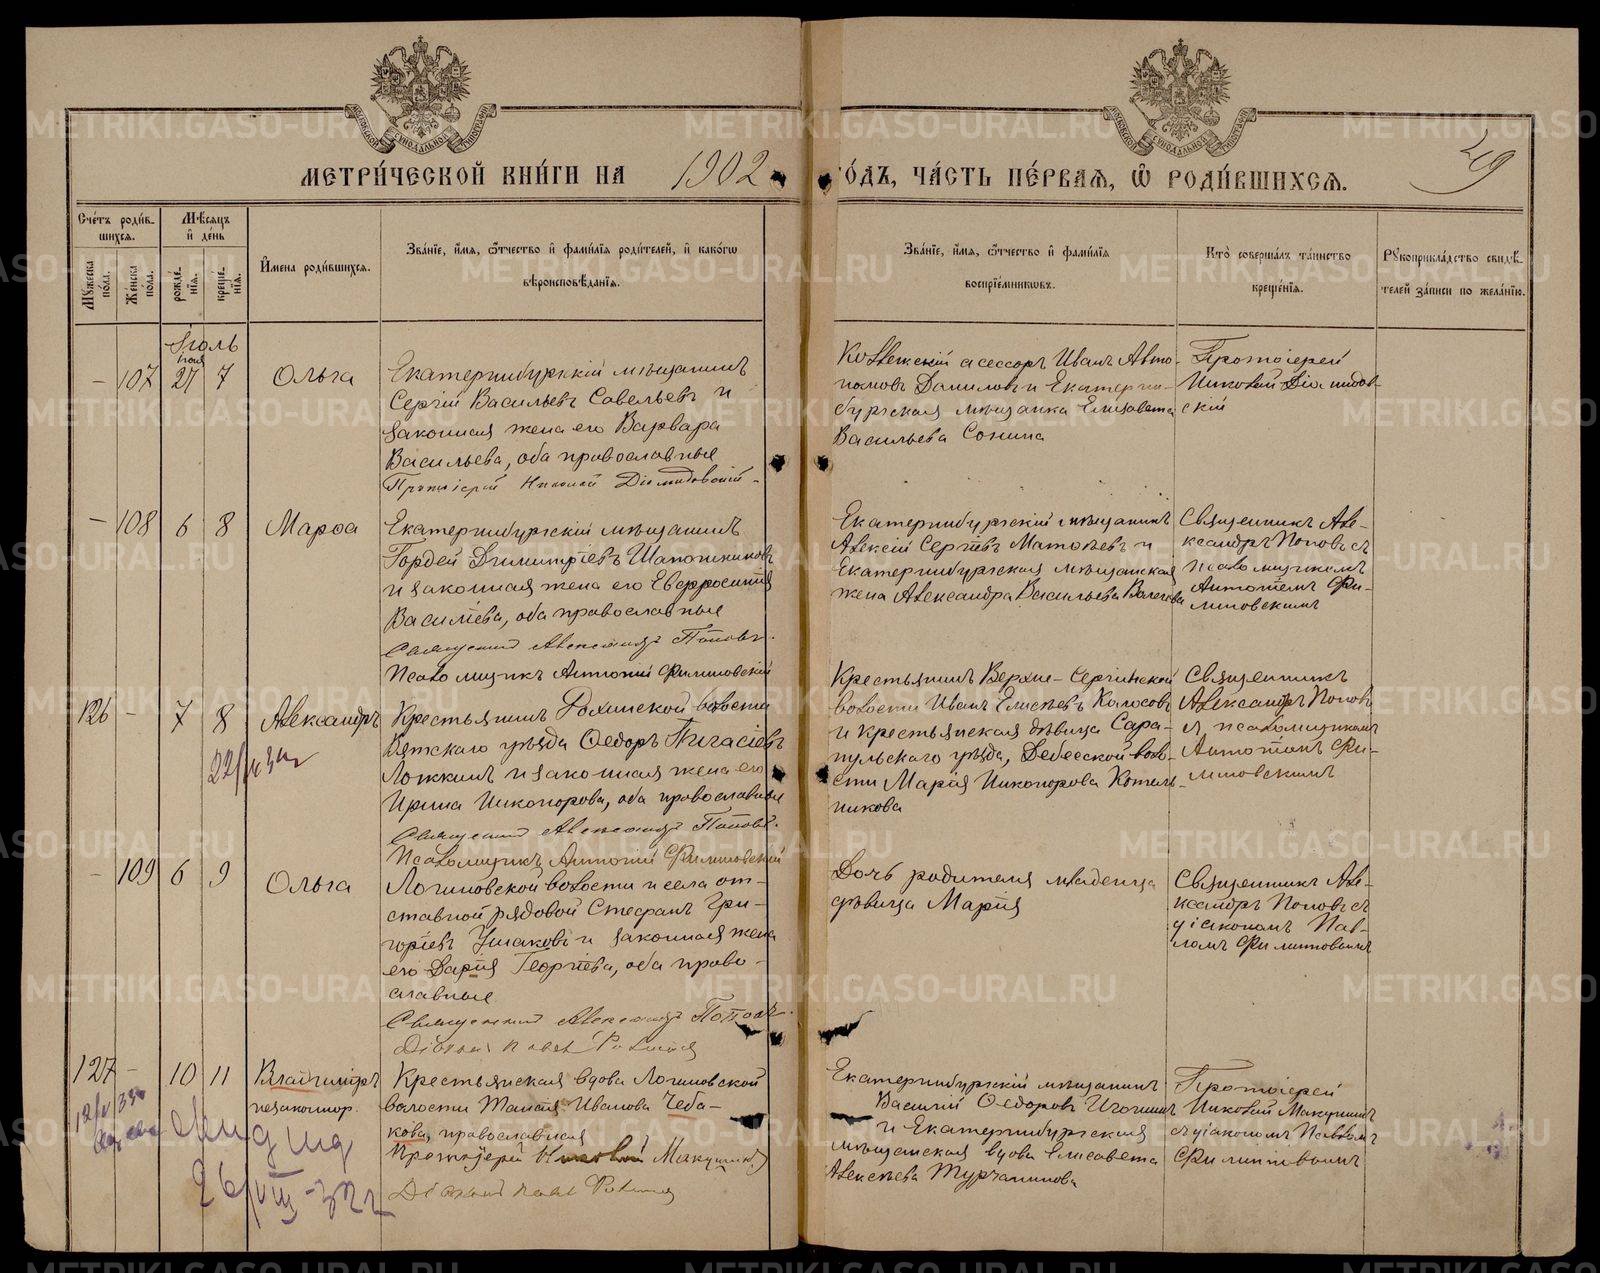 МЕТРИ́ЧЕСКОЙ КНИ́ГИ НА 1902 ГО́ДЪ, ЧА́СТЬ ПЕ́РВАЯ, Ѡ РОДИ́ВШИХСЯ.
49
Сче́тъ роди́в-
шихся.
Мѣ́сяцъ
и́ де́нь
Мꙋ́жеска
по́ла.
Же́нска
по́ла.
рожде́-
нїя.
креще́-
нїя.
И҆мена роди́вшихся.
Зва́нїе, и҆́мя, ѻ҆́тчество и҆ фами́лїя роди́телей, и҆ како́гѡ
вѣроисповѣ́данїя.
Зва́нїе, и҆́мя, ѻ҆́тчество и҆ фами́лїя
воспрїе́мникѡвъ.
Кто̀ соверша́лъ та́инство
креще́нїя.
Рꙋкоприкла́дство свидѣ́-
телей за́писи по жела́нїю.
Іюль
— 107 27 7 Ольга
Екатеринбургскій мѣщанинъ
Сергій Васильевъ Савельевъ и
законная жена его Варвара
Васильева, оба православные
Протоіерей Николай Діомидовскій
Коллежскій асессоръ Иванъ Авто-
номовъ Даниловъ и Екатерин-
бургская мѣщанка Елизавета
Васильева Сонина
Протоіерей
Николай Діомидов-
скій
— 108 6 8 Марѳа
Екатеринбургскій мѣщанинъ
Гордей Димитріевъ Шапошниковъ
и законная жена его Евфросинія
Василіева, оба православные
Священникъ Александръ Поповъ.
Псаломщикъ Антоній Филипповскій
Екатеринбургскій мѣщанинъ
Алексій Сергіевъ и
Екатеринбургская мѣщанская
жена Александра Васильева
Священникъ Але-
ксандръ Поповъ съ
псаломщикомъ
Антоніемъ Фи-
липповскимъ
126 — 7 8 Александръ
Крестьянинъ волости
Вятскаго уѣзда Ѳедоръ
Ложкинъ и законная жена его
Ирина Никонорова, оба православные
Священникъ Александръ Поповъ.
Псаломщикъ Антоній Филипповскій
Крестьянинъ Верхне-Сергинской
волости Иванъ Елисѣевъ Колосовъ
и крестьянская дѣвица Сара-
пульскаго уѣзда, Дебесской воло-
сти Марія Никонорова Котель-
никова
Священникъ
Александръ Поповъ
съ псаломщикомъ
Антоніемъ Фи-
липповскимъ
— 109 6 9 Ольга
Логиновской волости и села от-
ставной рядовой Стефанъ Гри-
горіевъ Ушаковъ и законная жена
его Дарія Георгіева, оба право-
славные
Священникъ Александръ Поповъ.
Діаконъ Павелъ
Дочь родителя младенца
дѣвица Марія
Священникъ Але-
ксандръ Поповъ съ
діакономъ Пав-
ломъ
127 — 10 11 Владиміръ
незаконнор.
Крестьянская вдова Логиновской
волости Иванова Чеба-
кова, православная
Протоіерей Николай
Діаконъ Павелъ
Екатеринбургскій мѣщанинъ
Василій Ѳедоровъ
и Екатеринбургская
мѣщанская вдова Елисавета
Алексѣева Турчанинова
Протоіерей
Николай
съ діакономъ Павломъ
26/VIII-32 г
METRIKI.GASO-URAL.RU